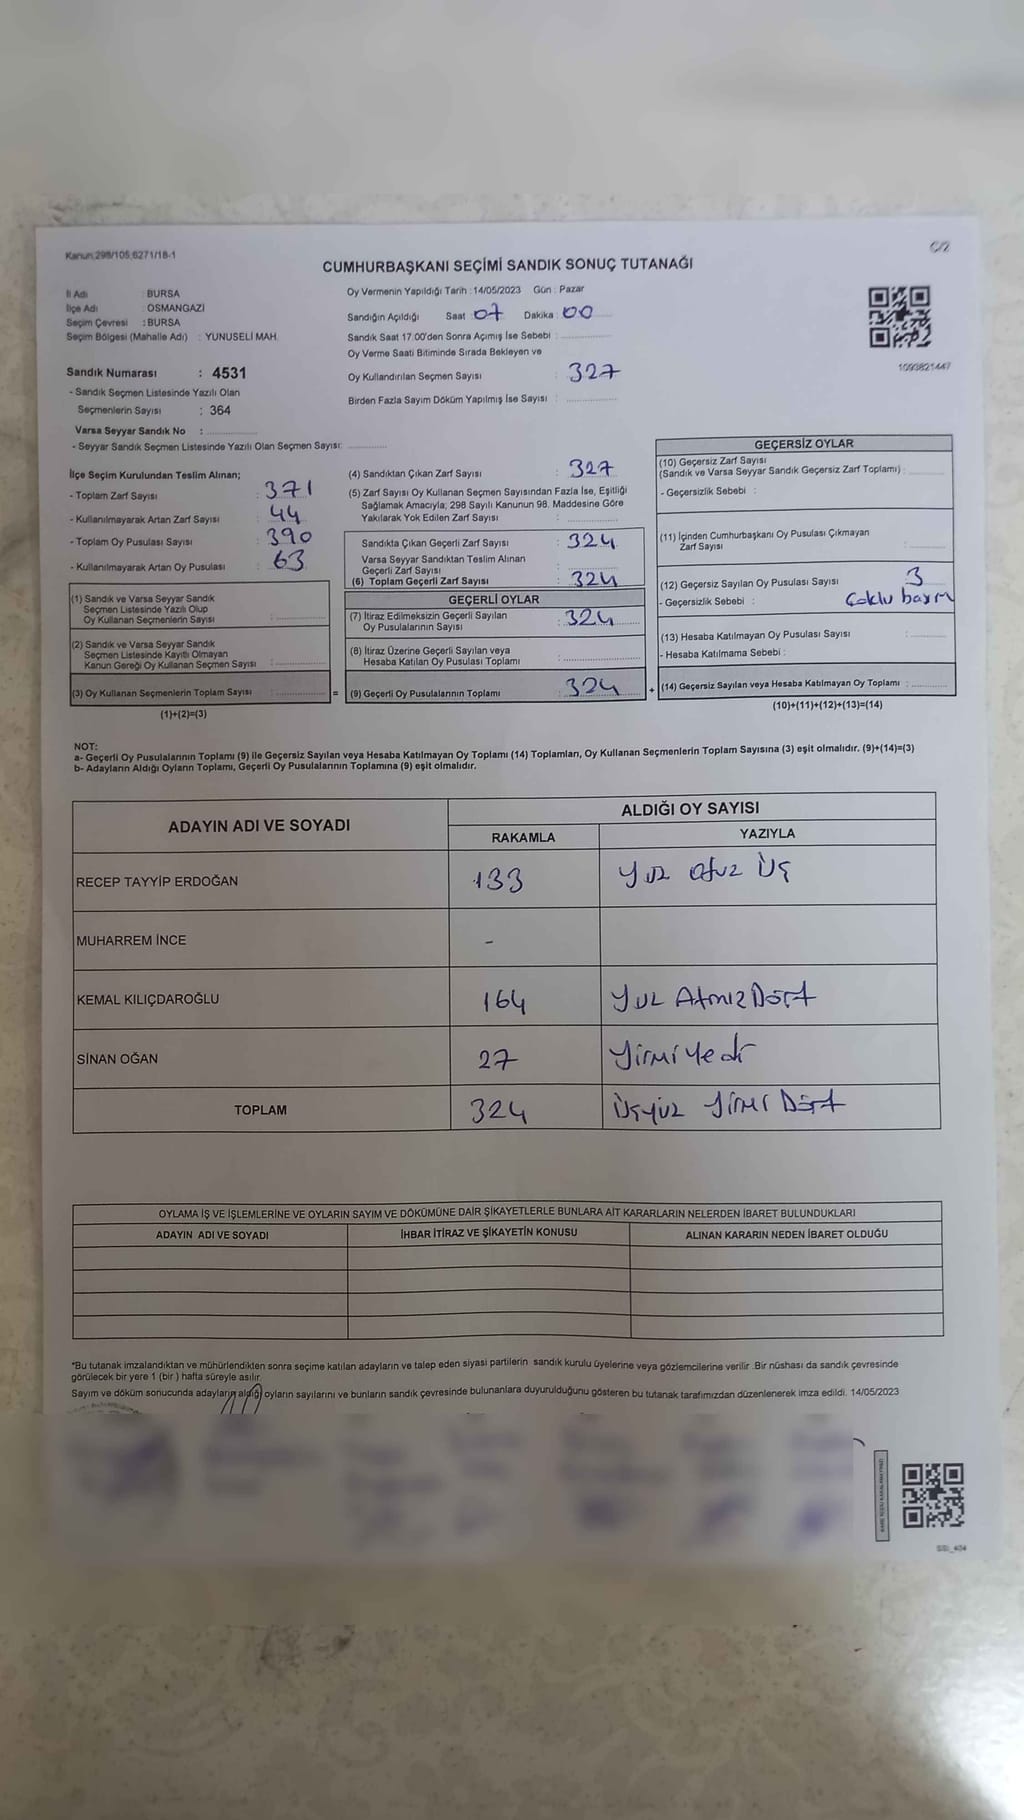 Kanun:298/105,6271/18-1
C/2
CUMHURBAŞKANI SEÇİMİ SANDIK SONUÇ TUTANAĞI
İl Adı : BURSA
İlçe Adı : OSMANGAZİ
Seçim Çevresi : BURSA
Seçim Bölgesi (Mahalle Adı) : YUNUSELİ MAH.
Sandık Numarası : 4531
- Sandık Seçmen Listesinde Yazılı Olan
Seçmenlerin Sayısı : 364
Varsa Seyyar Sandık No :
- Seyyar Sandık Seçmen Listesinde Yazılı Olan Seçmen Sayısı:
Oy Vermenin Yapıldığı Tarih : 14/05/2023 Gün : Pazar
Sandığın Açıldığı Saat : 07 Dakika : 00
Sandık Saat 17.00'den Sonra Açımış İse Sebebi :
Oy Verme Saati Bitiminde Sırada Bekleyen ve
Oy Kullandırılan Seçmen Sayısı : 327
Birden Fazla Sayım Döküm Yapılmış İse Sayısı :
1093821447
İlçe Seçim Kurulundan Teslim Alınan;
- Toplam Zarf Sayısı : 371
- Kullanılmayarak Artan Zarf Sayısı : 44
- Toplam Oy Pusulası Sayısı : 390
- Kullanılmayarak Artan Oy Pusulası : 63
(1) Sandık ve Varsa Seyyar Sandık
Seçmen Listesinde Yazılı Olup
Oy Kullanan Seçmenlerin Sayısı :
(2) Sandık ve Varsa Seyyar Sandık
Seçmen Listesinde Kayıtlı Olmayan
Kanun Gereği Oy Kullanan Seçmen Sayısı :
(3) Oy Kullanan Seçmenlerin Toplam Sayısı :
(1)+(2)=(3)
(4) Sandıktan Çıkan Zarf Sayısı : 327
(5) Zarf Sayısı Oy Kullanan Seçmen Sayısından Fazla İse, Eşitliği
Sağlamak Amacıyla; 298 Sayılı Kanunun 98. Maddesine Göre
Yakılarak Yok Edilen Zarf Sayısı :
Sandıkta Çıkan Geçerli Zarf Sayısı : 324
Varsa Seyyar Sandıktan Teslim Alınan
Geçerli Zarf Sayısı :
(6) Toplam Geçerli Zarf Sayısı : 324
GEÇERLİ OYLAR
(7) İtiraz Edilmeksizin Geçerli Sayılan
Oy Pusulalarının Sayısı : 324
(8) İtiraz Üzerine Geçerli Sayılan veya
Hesaba Katılan Oy Pusulası Toplamı :
= (9) Geçerli Oy Pusulalarının Toplamı : 324
GEÇERSİZ OYLAR
(10) Geçersiz Zarf Sayısı
(Sandık ve Varsa Seyyar Sandık Geçersiz Zarf Toplamı) :
- Geçersizlik Sebebi :
(11) İçinden Cumhurbaşkanı Oy Pusulası Çıkmayan
Zarf Sayısı :
(12) Geçersiz Sayılan Oy Pusulası Sayısı : 3
- Geçersizlik Sebebi : Çoklu
(13) Hesaba Katılmayan Oy Pusulası Sayısı :
- Hesaba Katılmama Sebebi :
+ (14) Geçersiz Sayılan veya Hesaba Katılmayan Oy Toplamı :
(10)+(11)+(12)+(13)=(14)
NOT:
a- Geçerli Oy Pusulalarının Toplamı (9) ile Geçersiz Sayılan veya Hesaba Katılmayan Oy Toplamı (14) Toplamları, Oy Kullanan Seçmenlerin Toplam Sayısına (3) eşit olmalıdır. (9)+(14)=(3)
b- Adayların Aldığı Oyların Toplamı, Geçerli Oy Pusulalarının Toplamına (9) eşit olmalıdır.
ADAYIN ADI VE SOYADI ALDIĞI OY SAYISI
RAKAMLA YAZIYLA
RECEP TAYYİP ERDOĞAN 133 Yüz Otuz Üç
MUHARREM İNCE -
KEMAL KILIÇDAROĞLU 164 Yüz Atmış Dört
SİNAN OĞAN 27 Yirmi Yedi
TOPLAM 324 Üçyüz Yirmi Dört
OYLAMA İŞ VE İŞLEMLERİNE VE OYLARIN SAYIM VE DÖKÜMÜNE DAİR ŞİKAYETLERLE BUNLARA AİT KARARLARIN NELERDEN İBARET BULUNDUKLARI
ADAYIN ADI VE SOYADI İHBAR İTİRAZ VE ŞİKAYETİN KONUSU ALINAN KARARIN NEDEN İBARET OLDUĞU
*Bu tutanak imzalandıktan ve mühürlendikten sonra seçime katılan adayların ve talep eden siyasi partilerin sandık kurulu üyelerine veya gözlemcilerine verilir. Bir nüshası da sandık çevresinde
görülecek bir yere 1 (bir) hafta süreyle asılır.
Sayım ve döküm sonucunda adayların aldığı oyların sayılarını ve bunların sandık çevresinde bulunanlara duyurulduğunu gösteren bu tutanak tarafımızdan düzenlenerek imza edildi. 14/05/2023